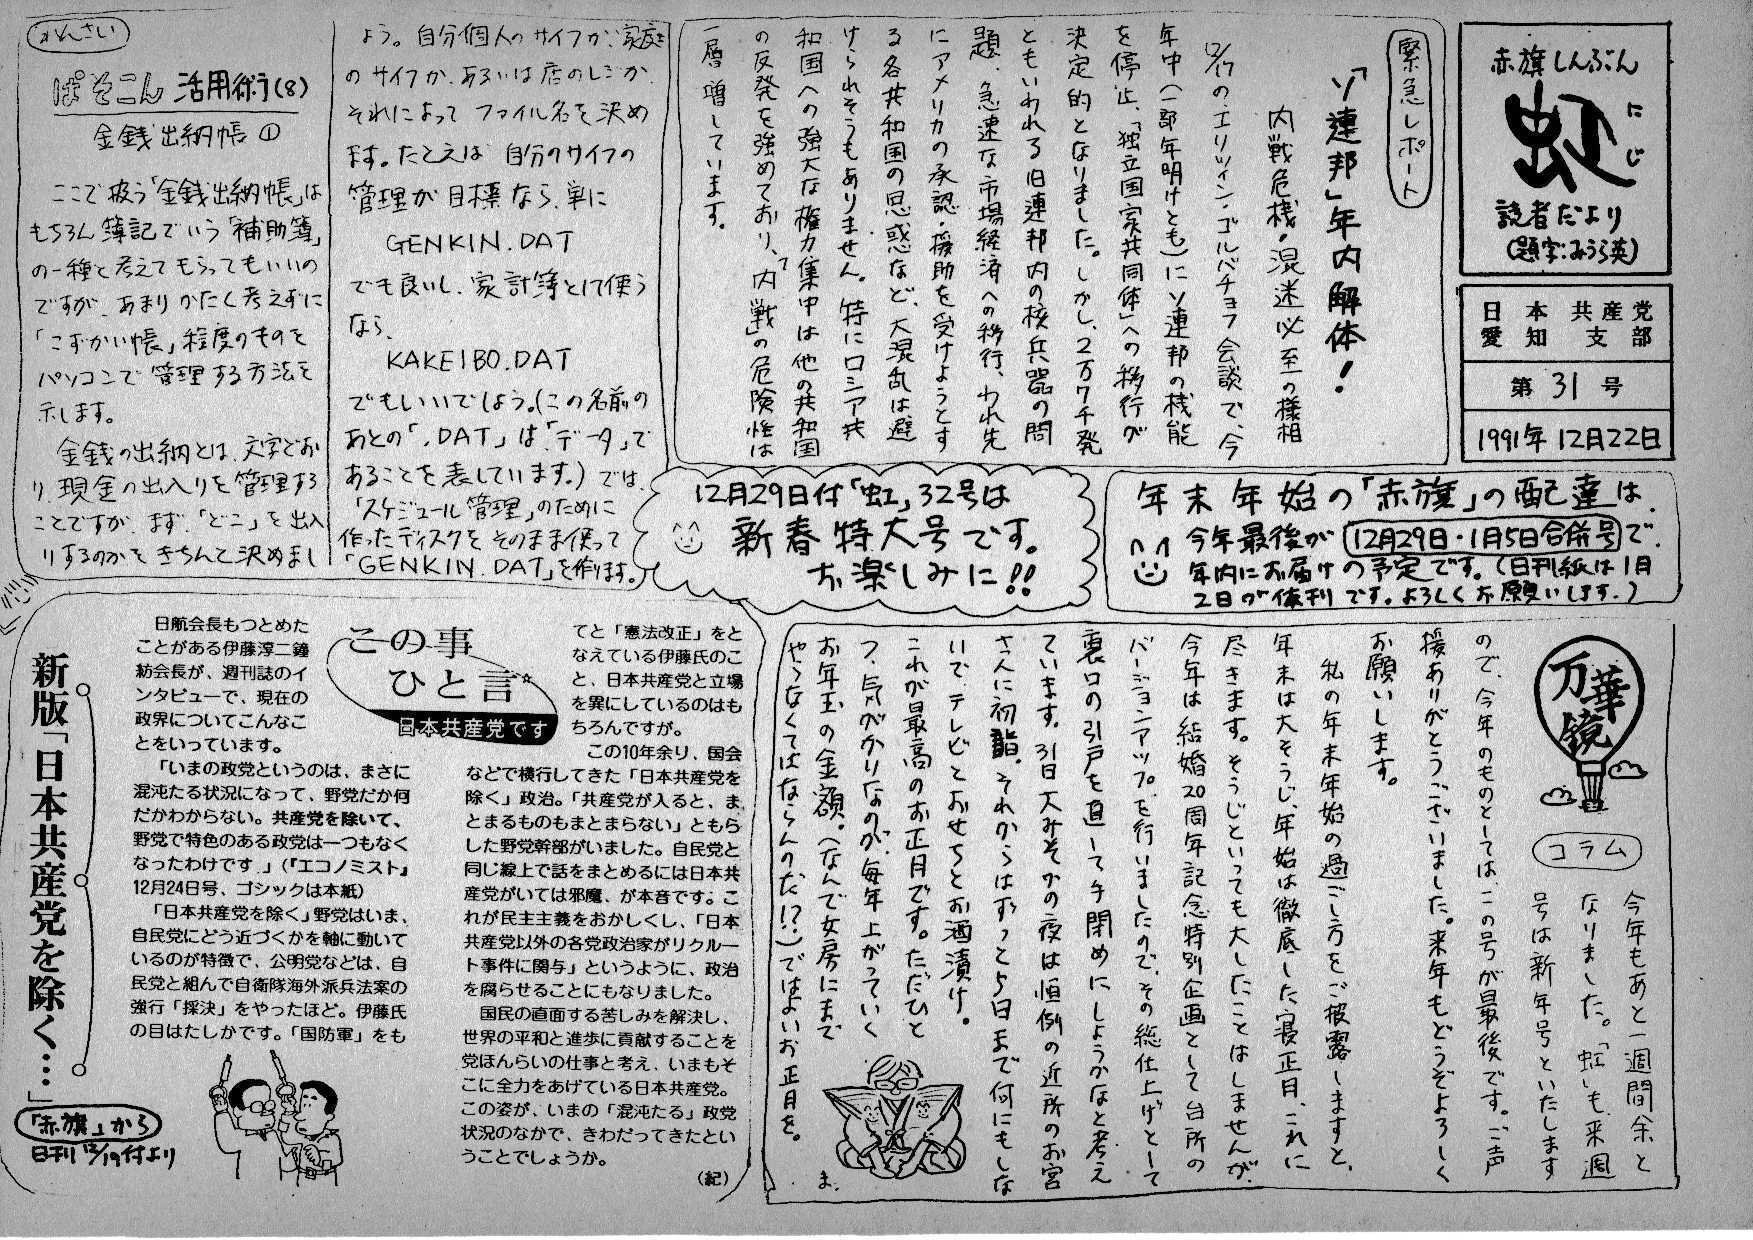 赤旗しんぶん
虹
にじ
読者だより
(題字:みうら英)
日本共産党
愛知支部
第31号
1991年12月22日
緊急レポート
「ソ連邦」年内解体!
内戦危機・混迷必至の様相
12/17の、エリツィン・ゴルバチョフ会談で、今
年中(一部年明けとも)にソ連邦の機能
を停止、「独立国家共同体」への移行が
決定的となりました。しかし、2万7千発
ともいわれる旧連邦内の核兵器の問
題、急速な市場経済への移行、われ先
にアメリカの承認・援助を受けようとす
る各共和国の思惑など、大混乱は避
けられそうもありません。特にロシア共
和国への強大な権力集中は他の共和国
の反発を強めており、「内戦」の危険性は
一層増しています。
年末年始の「赤旗」の配達は、
今年最後が12月29日・1月5日合併号で、
年内にお届けの予定です。(日刊紙は1月
2日が休刊です。よろしくお願いします。)
12月29日付「虹」32号は
新春特大号です。
お楽しみに!!
れんさい
ぱそこん活用術(8)
金銭出納帳①
ここで扱う「金銭出納帳」は
もちろん簿記でいう「補助簿」
の一種と考えてもらってもいいの
ですが、あまりかたく考えずに
「こずかい帳」程度のものを
パソコンで管理する方法を
示します。
金銭の出納とは、文字どお
り、現金の出入りを管理する
ことですが、まず、「どこ」を出入
りするのかをきちんと決めまし
ょう。自分個人のサイフか、家庭
のサイフか、あるいは店のレジか、
それによってファイル名を決め
ます。たとえば自分のサイフの
管理が目標なら、単に
GENKIN.DAT
でも良いし、家計簿として使う
なら、
KAKEIBO.DAT
でもいいでしょう。(この名前の
あとの「.DAT」は「データ」で
あることを表しています。)では、
「スケジュール管理」のために
作ったディスクをそのまま使って
「GENKIN.DAT」を作ります。
万華鏡
コラム
今年もあと一週間余と
なりました。「虹」も、来週
号は新年号といたします
ので、今年のものとしては、この号が最後です。ご声
援ありがとうございました。来年もどうぞよろしく
お願いします。
私の年末年始の過ごし方をご披露しますと、
年末は大そうじ、年始は徹底した寝正月、これに
尽きます。そうじといっても大したことはしませんが、
今年は結婚20周年記念特別企画として台所の
バージョンアップを行いましたので、その総仕上げとして
裏口の引戸を直して手閉めにしようかなと考え
ています。31日大みそかの夜は恒例の近所のお宮
さんに初詣。それからはずっと5日まで何にもしな
いで、テレビとおせちとお酒漬け。
これが最高のお正月です。ただひと
つ、気がかりなのが、毎年上がっていく
お年玉の金額。(なんで女房にまで
やらなくてはならんのだ!?)ではよいお正月を。
ま.
この事
ひと言
日本共産党です
新版「日本共産党を除く…」
日航会長もつとめた
ことがある伊藤淳二鐘
紡会長が、週刊誌のイ
ンタビューで、現在の
政界についてこんなこ
とをいっています。
「いまの政党というのは、まさに
混沌たる状況になって、野党だか何
だかわからない。共産党を除いて、
野党で特色のある政党は一つもなく
なったわけです」(『エコノミスト』
12月24日号、ゴシックは本紙)
「日本共産党を除く」野党はいま、
自民党にどう近づくかを軸に動いて
いるのが特徴で、公明党などは、自
民党と組んで自衛隊海外派兵法案の
強行「採決」をやったほど。伊藤氏
の目はたしかです。「国防軍」をも
てと「憲法改正」をと
なえている伊藤氏のこ
と、日本共産党と立場
を異にしているのはも
ちろんですが。
この10年余り、国会
などで横行してきた「日本共産党を
除く」政治。「共産党が入ると、ま
とまるものもまとまらない」ともら
した野党幹部がいました。自民党と
同じ線上で話をまとめるには日本共
産党がいては邪魔、が本音です。こ
れが民主主義をおかしくし、「日本
共産党以外の各党政治家がリクルー
ト事件に関与」というように、政治
を腐らせることにもなりました。
国民の直面する苦しみを解決し、
世界の平和と進歩に貢献することを
党ほんらいの仕事と考え、いまもそ
こに全力をあげている日本共産党。
この姿が、いまの「混沌たる」政党
状況のなかで、きわだってきたとい
うことでしょうか。
(紀)
「赤旗」から
日刊12/19付より